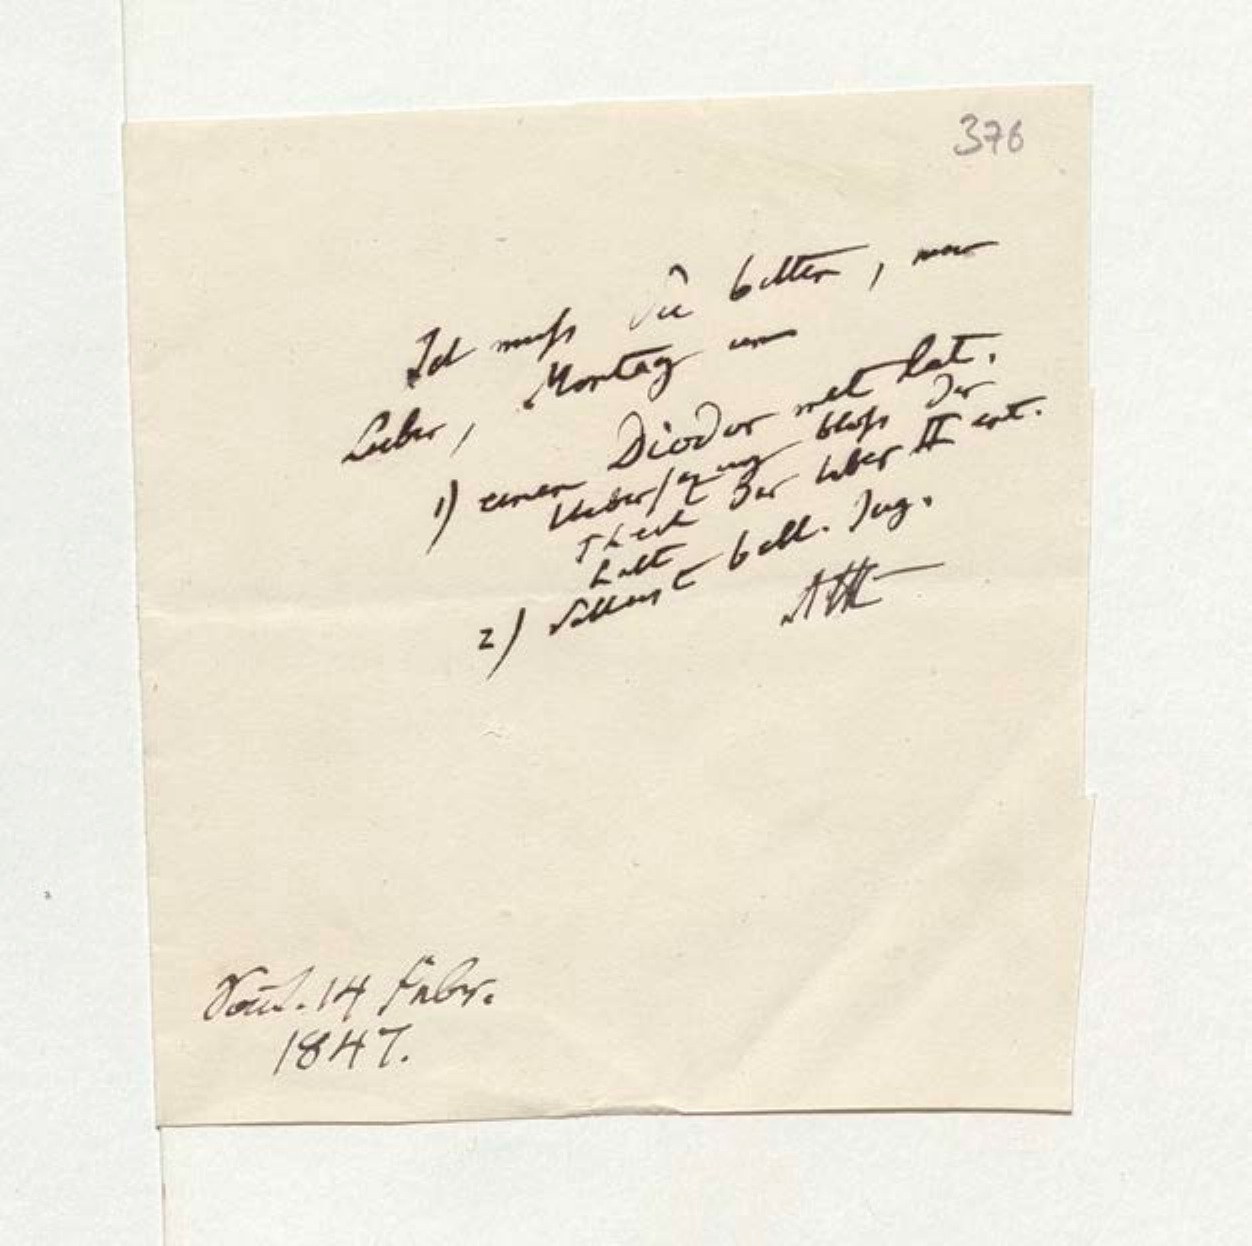 376
Ich muß Sie bitten, mir
Lieber, Montag um
1) einen Diodor mit lat.
Uebersezung bloß der
Theil der liber II ent.
hält
2) Sallust bell. Jug.
AHt
14 Febr.
1847.